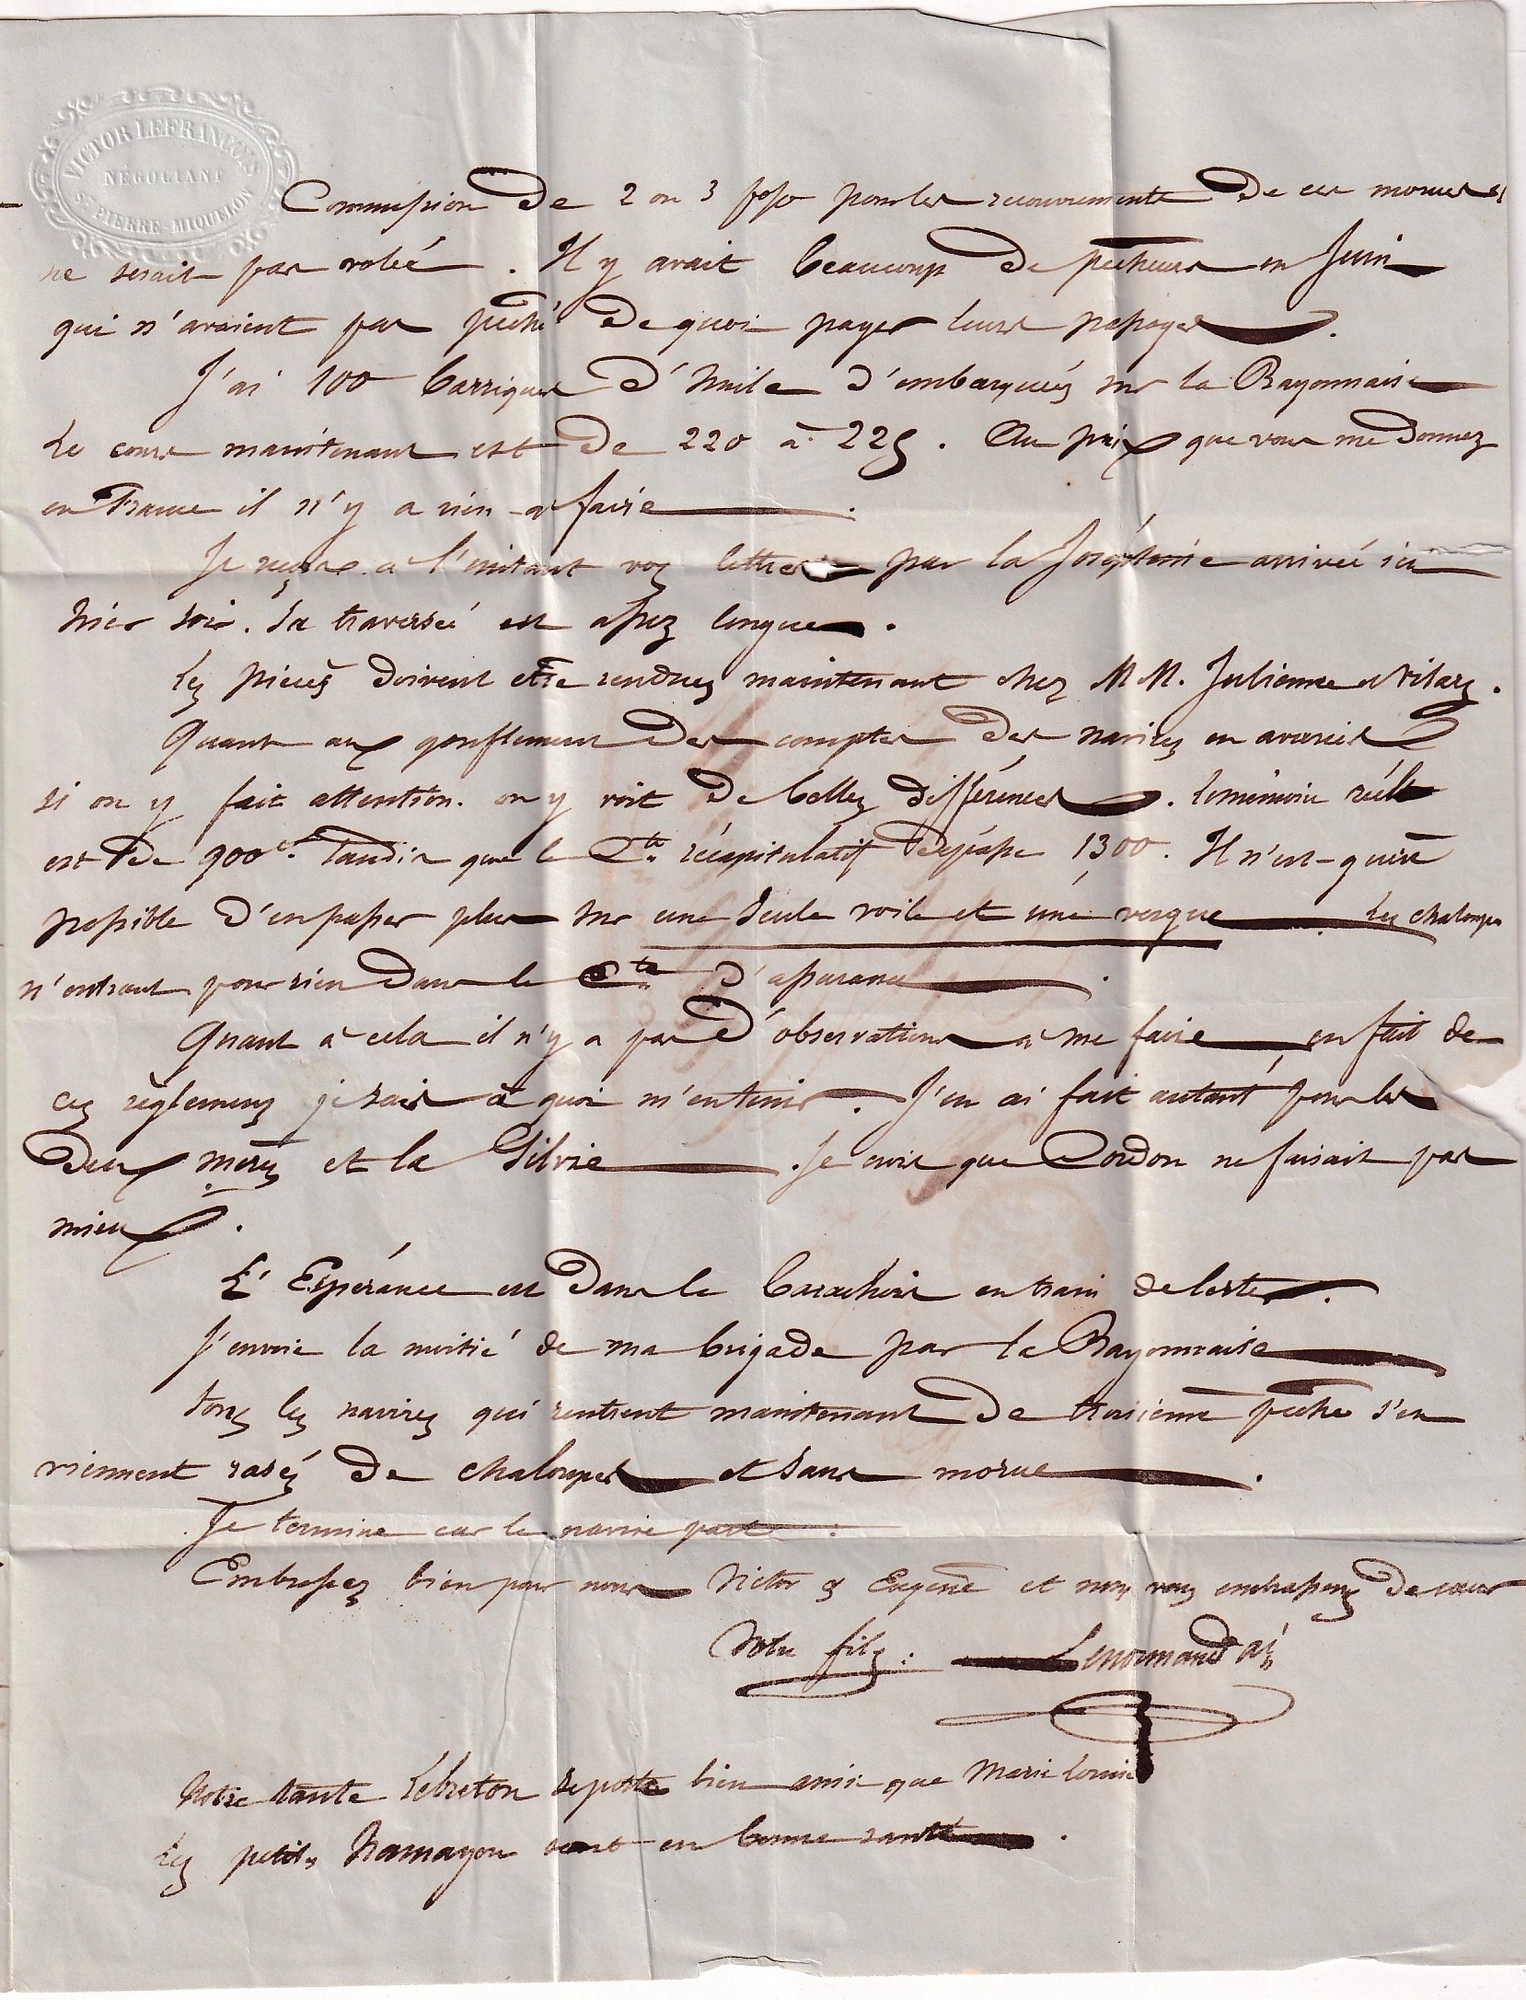 VICTOR LEFRANCOIS
NÉGOCIANT
ST PIERRE-MIQUELON
Commission de 2 ou 3 pour les recouvrements de ces morues
ne serait pas volée. Il y avait beaucoup de pêcheurs en Juin
qui n'avaient pas pêché de quoi payer leurs passages.
J'ai 100 barriques d'huile d'embarqués sur la Bayonnaise
Le cours maintenant est de 220 à 225. Au prix que vous me donnez
en France il n'y a rien à faire.
Je reçois à l'instant vos lettres par la Joséphine arrivée ici
hier soir. Sa traversée est assez longue.
Les pièces doivent etre rendues maintenant chez M M. Julienne
Quant aux gonflement des comptes des navires en avaries
si on y fait attention. on y voit de belles différences. le mémoire réel
est de 900 f. Tandis que le Cte. récapitulatif dépasse 1300. Il n'est guère
possible d'en passer plus sur une seule voile et une vergue Les chaloupes
n'entrant pour rien dans le Cte d'assurance.
Quant à cela il n'y a pas d'observations à me faire en fait de
ces règlemens je sais à quoi m'en tenir. J'en ai fait autant pour les
deux mers et la Silvie. Je crois que Cordon ne faisait pas
mieux.
L'Espérance est dans le Barachois en train de lester.
J'envoie la moitié de ma brigade par la Bayonnaise
tous les navires qui rentrent maintenant de troisième pêche s'en
viennent rasés de chaloupes et sans morue.
Je termine car le navire part.
Embrassez bien pour nous Victor & Eugène et nous vous embrassons de cœur
Votre fils: Lenormand
Notre tante Lebreton se porte bien ainsi que Marie Louise
Les petits Hamayon sont en bonne santé.